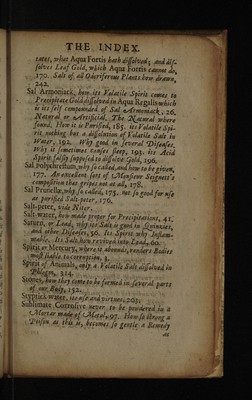 THE INDEX.
tates, what Aqua Fortis hath dissolved; and dis-
solves Leaf Gold, which Aqua Fortis cannot do,
170. Salt of all Odoriferous Plants how drawn,
242.
Sal Armoniack, how its Volatile Spirit comes to
Precipitate Gold dissolved in Aqua Regalis which
is its self compounded of Sal Armoniack, 26.
Natural or Artificial, The Natural where
found. How it is Purified, 185. its Volatile Spi-
rit nothing but a dissolution of Volatile Salt in
Water, 192. Why good in several Diseases.
Why it sometimes causes sleep, 193. its Acid
Spirit falsly supposed to dissolve Gold, 196.
Sal Polychrestum, why so called, and how to be given,
177. An excellent sort of Monsieur Seignett's
composition that gripes not at all, 178.
Sal Prunellæ, why so called, 175. not so good for use
as purified Salt-peter, 176.
Salt-peter, vide Niter.
Salt-water, how made proper for Precipitations, 41.
Saturn, or Lead, why its Salt is good in Quinzies,
and other Diseases, 56. Its Spirit why Inflam-
mable. Its Salt how revived into Lead, 60.
Spirit or Mercury, where it abounds, renders Bodies
most liable to corruption, 3.
Spirit of Animals, only a Volatile Salt dissolved in
Phlegm, 214.
Stones, how they come to be formed in several parts
of our Body, 152.
Styptick-water, its use and virtues, 263.
Sublimate Corrosive never to be powdered in a
Mortar made of Metal, 97. How so strong a
Poison as this is, becomes so gentle a Remedy
as